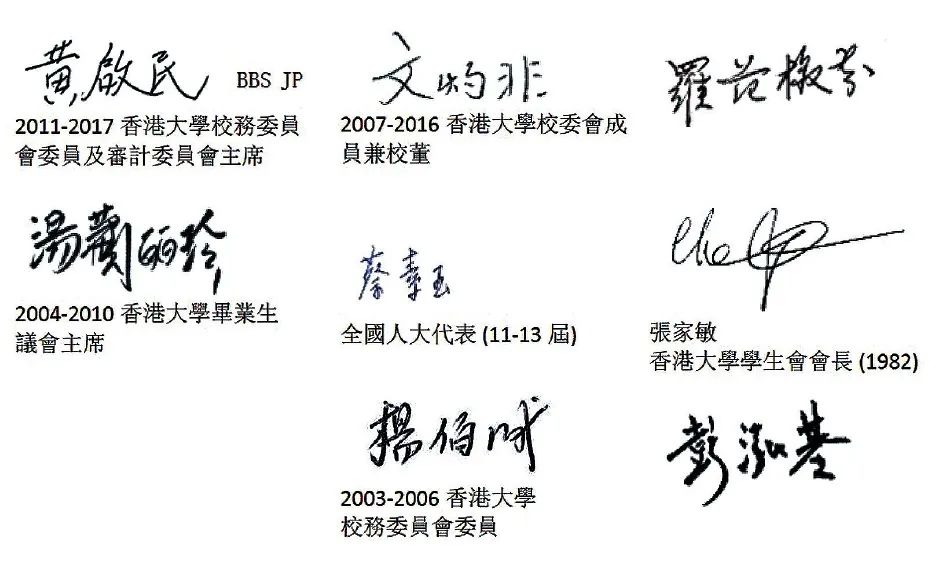 黃啟民 BBS JP
2011-2017 香港大學校務委員
會委員及審計委員會主席
文灼非
2007-2016 香港大學校委會成
員兼校董
羅范椒芬
湯蕭麗玲
2004-2010 香港大學畢業生
議會主席
蔡素玉
全國人大代表 (11-13 屆)
張家敏
香港大學學生會會長 (1982)
楊伯成
2003-2006 香港大學
校務委員會委員
彭泓基